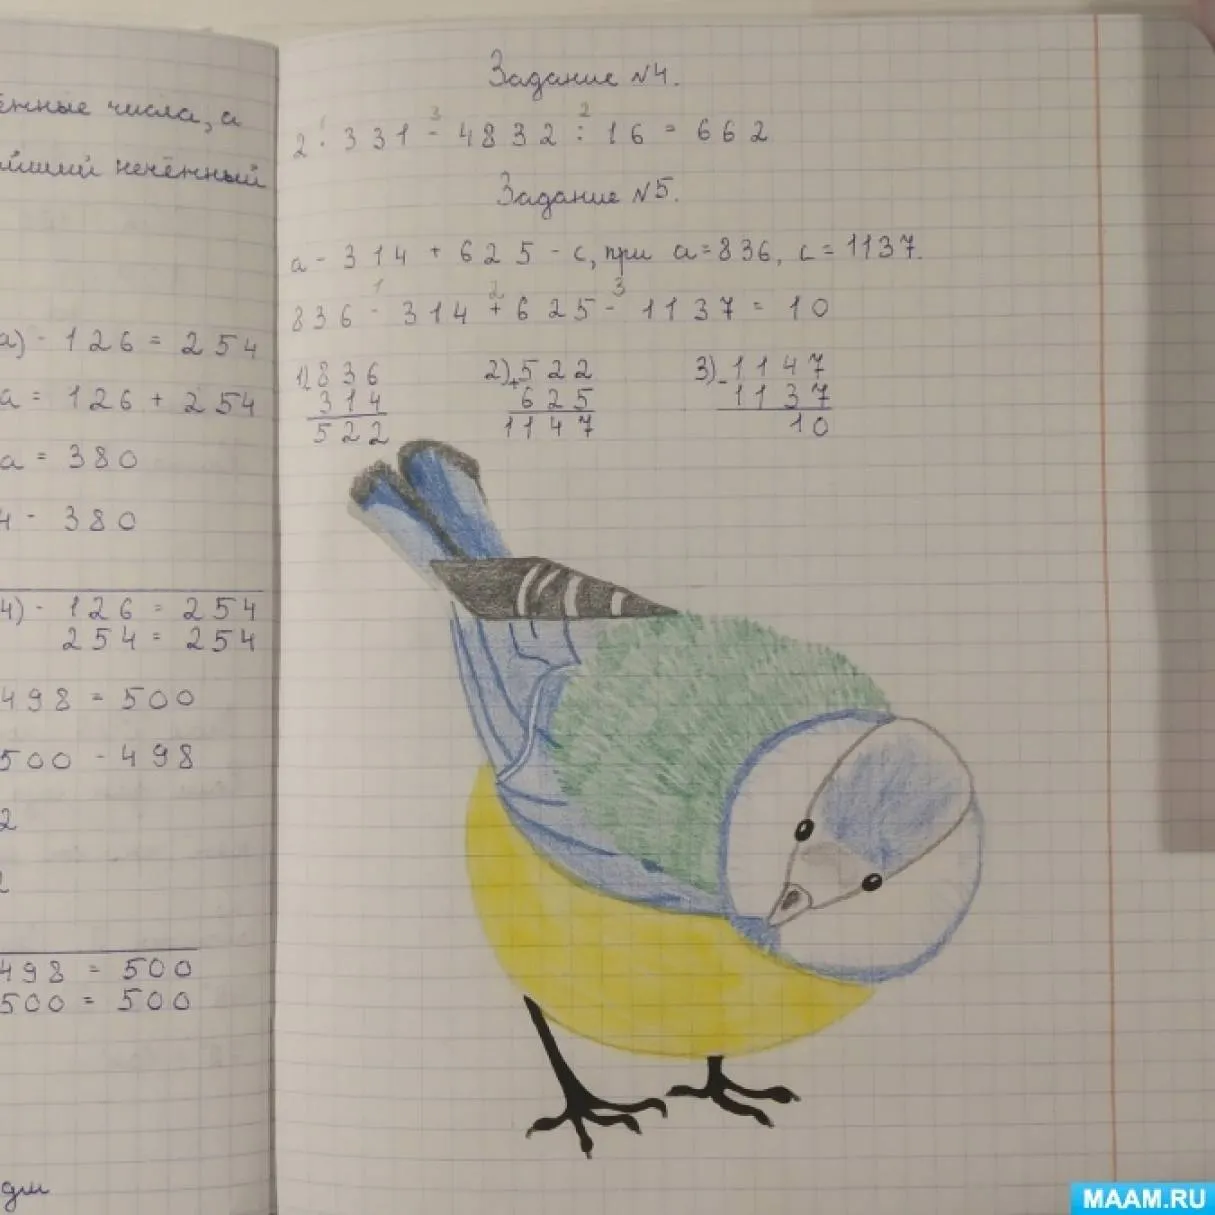 числа, а
нечётный
) - 126 = 254
а = 126 + 254
а = 380
- 380
4) - 126 = 254
254 = 254
498 = 500
500 - 498
2
498 = 500
500 = 500
Задание №4.
1 3 2
2 · 331 - 4832 : 16 = 662
Задание №5.
а - 314 + 625 - с, при а = 836, с = 1137.
1 2 3
836 - 314 + 625 - 1137 = 10
1) 836 2) + 522 3) - 1147
314 625 1137
522 1147 10
MAAM.RU